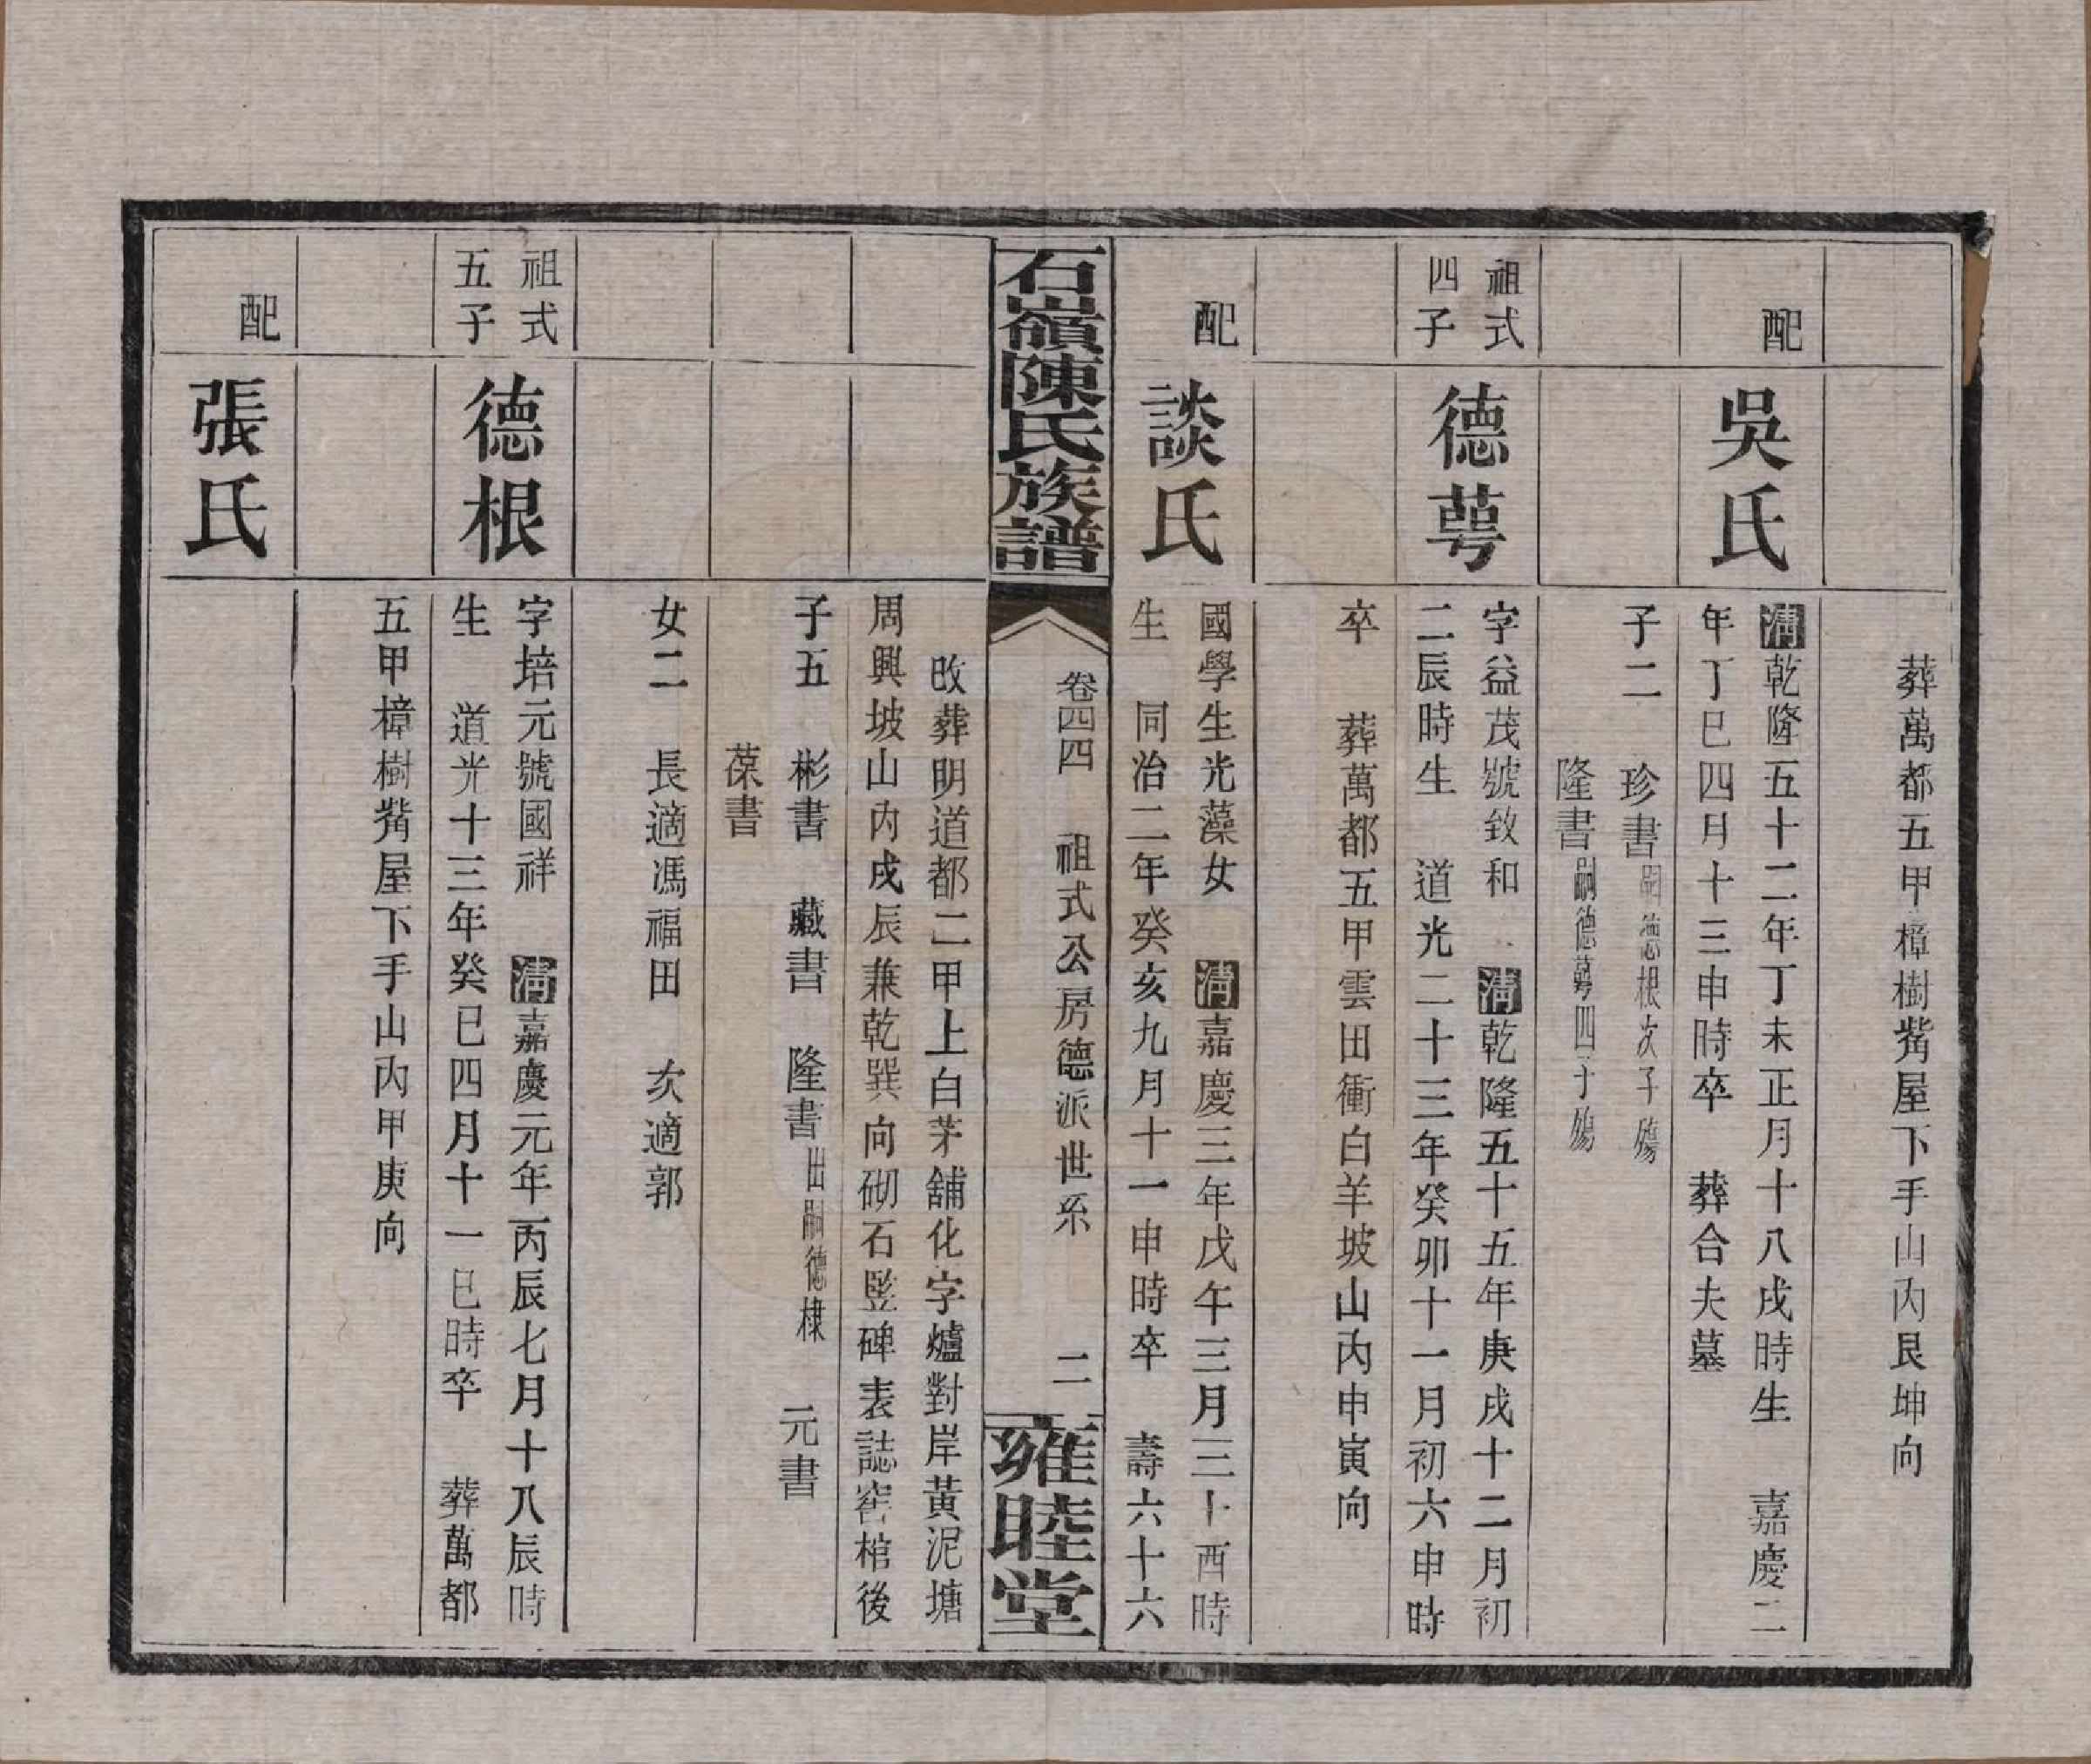 葬萬都五甲樟樹嘴屋下手山內艮坤向
配
吳氏
清乾隆五十二年丁未正月十八戌時生　嘉慶二
年丁巳四月十三申時卒　葬合夫墓
子二　珍書嗣德根次子殤
隆書嗣德萼四子殤
祖式
四子
德萼
字益茂號致和　清乾隆五十五年庚戌十二月初
二辰時生　道光二十三年癸卯十一月初六申時
卒　葬萬都五甲雲田衝白羊坡山內申寅向
配
談氏
國學生光藻女　清嘉慶三年戊午三月三十酉時
生　同治二年癸亥九月十一申時卒　壽六十六
石嶺陳氏族譜
卷四四　祖式公房德派世系　二
雍睦堂
改葬明道都二甲上白茅舖化字爐對岸黃泥塘
周興坡山內戌辰兼乾巽向砌石豎碑表誌窖棺後
子五　彬書　藏書　隆書出嗣德棣　元書
葆書
女二　長適馮福田　次適郭
祖式
五子
德根
字培元號國祥　清嘉慶元年丙辰七月十八辰時
生　道光十三年癸巳四月十一巳時卒　葬萬都
五甲樟樹嘴屋下手山內甲庚向
配
張氏